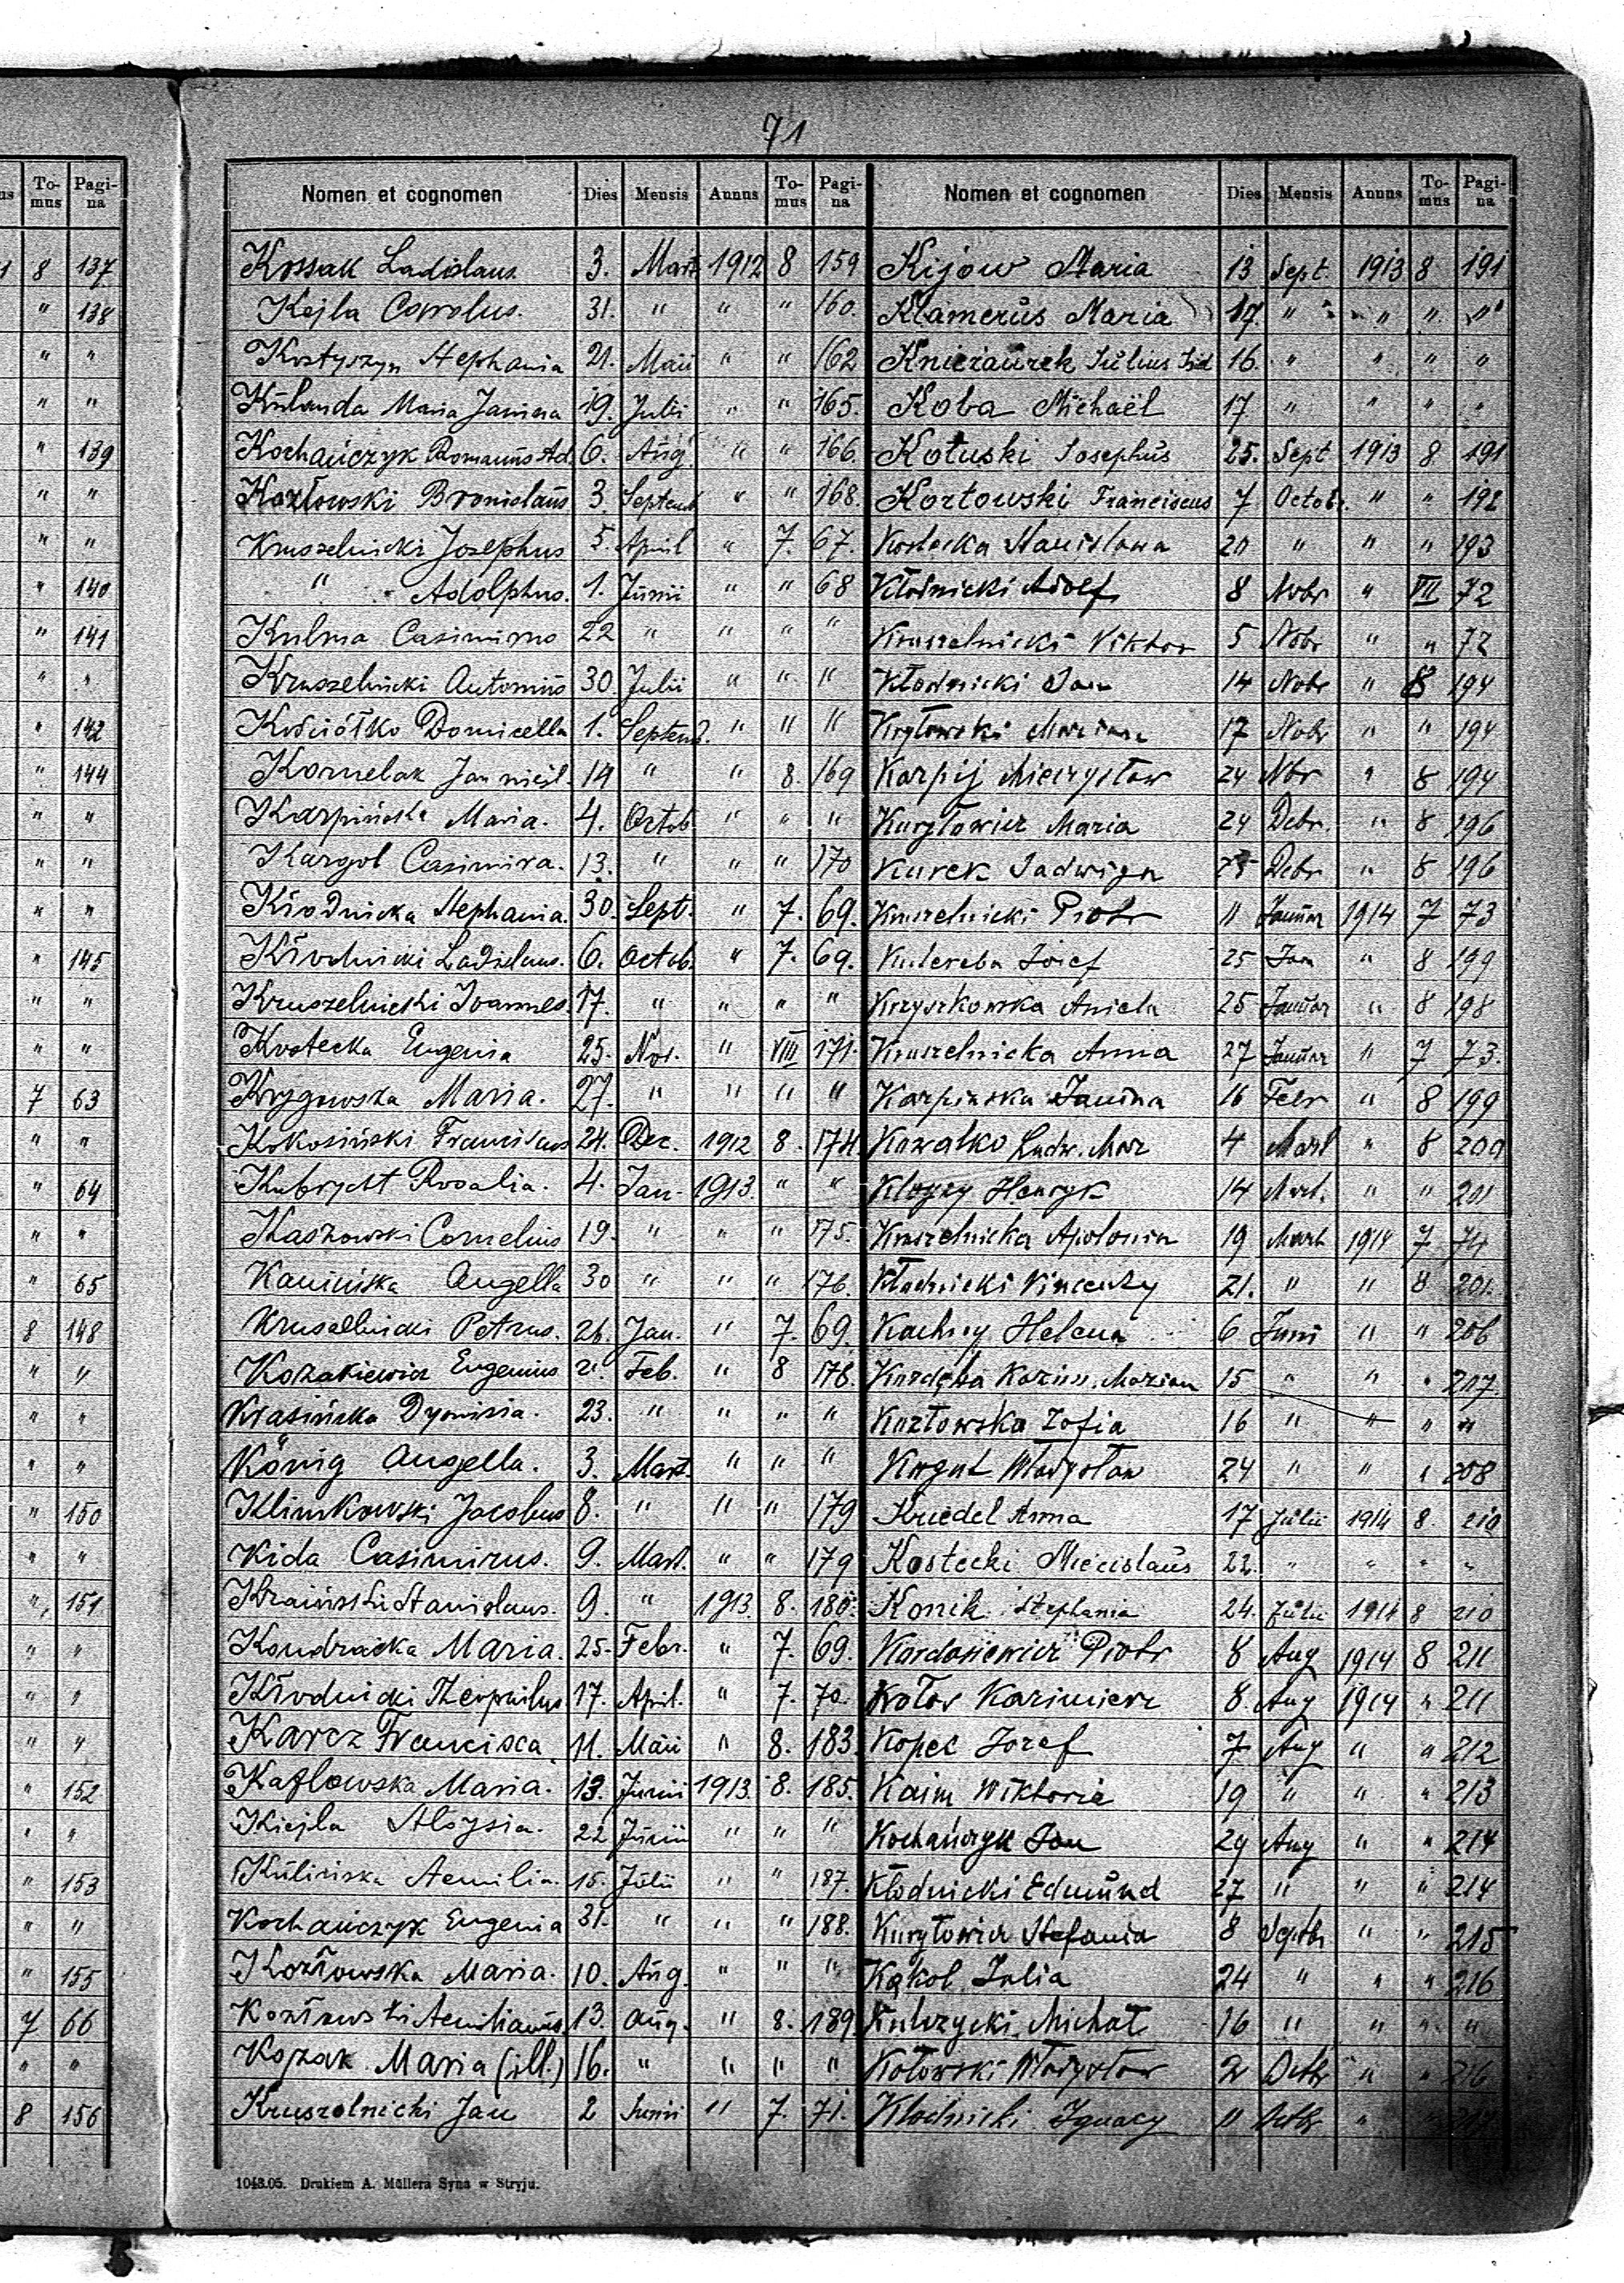 71
us To-mus Pagi-na
1 8 137
" 138
" "
" "
" 139
" "
" "
" 140
" 141
" "
" 142
" 144
" "
" "
" "
" 145
" "
" "
7 63
" "
" 64
" "
" 65
8 148
" "
" "
" "
" 150
" "
" 151
" "
" "
" "
" 152
" "
" 153
" "
" 155
7 66
" "
8 156
Nomen et cognomen Dies Mensis Annus To-mus Pagi-na
Kossak Ladislaus 3. Mart 1912 8 159
Kejla Carolus. 31. " " " 160.
Kostyszyn Stephania 21. Maii " " 162
Kulanda Maria Janina 19. Julii " " 165.
Kochańczyk Romanus Ad. 6. Aug. " " 166.
Kozłowski Bronislaus 3. Septemb " " 168.
Kruszelnicki Josephus 5. April " 7. 67.
" Adolphus. 1. Junii " " 68
Kulma Casimirus 22 " " " "
Kruszelnicki Antonius 30. Julii " " "
Kościółko Domicella 1. Septemb. " " "
Kornelak Jan 14 " " 8. 169
Karpińska Maria. 4. Octob. " " "
Kargol Casimira. 13. " " " 170
Kłodnicka Stephania. 30. Sept. " 7. 69.
Kłodnicki Ladislaus. 6. Octob. " 7. 69.
Kruszelnicki Joannes. 17. " " " "
Kostecka Eugenia 25. Nov. " VIII 171.
Krygowska Maria. 27. " " " "
Kokosiński Franciscus 24. Dec. 1912 8. 174.
Kubrycht Rosalia. 4. Jan. 1913. " "
Kaszowski Cornelius 19. " " " 175.
Kamińska Angella 30 " " " 176.
Kruselnicki Petrus. 26. Jan. " 7. 69.
Kozakiewicz Eugenius 2. Feb. " 8 178.
Krasińska Dyonisia. 23. " " " "
König Angella. 3. Mart. " " "
Klimkowski Jacobus 8. " " " 179
Kida Casimirus. 9. Mart. " " 179
Kraiński Stanislaus. 9. " 1913. 8. 180.
Kondracka Maria. 25. Febr. " 7. 69.
Kłodnicki Theophilus 17. April. " 7. 70.
Karcz Francisca 11. Maii " 8. 183.
Kozlowska Maria. 13. Junii 1913. 8. 185.
Kiejla Aloysia. 22 Junii " " "
Kulińska Aemilia. 15. Julii " " 187.
Kochańczyk Eugenia 31. " " " 188.
Kozłowska Maria. 10. Aug. " " "
Kozłowski Aemilianus. 13. Aug. " 8. 189.
Kozak Maria (ill.) 16. " " " "
Kruszelnicki Jan 2 Junii " 7. 71.
Nomen et cognomen Dies Mensis Annus To-mus Pagi-na
Kijow Maria 13 Sept. 1913 8 191
Klamerus Maria 17. " " " "
Knieżaurek Julius 16. " " " "
Koba Michaël 17 " " " "
Kotuski Josephus 25. Sept 1913 8 191
Kozłowski Franciscus 7 Octobr. " " 192
Kostecka Stanisława 20 " " " 193
Kłodnicki Adolf 8 Nobr " VII 72
Kruszelnicki Viktor 5 Nobr " " 72
Kłodnicki Jan 14 Nobr " 8 194
Kryłowski Marian 17 Nobr " " 194
Karpij Mieczysław 24 Nbr " 8 194
Kuryłowicz Maria 24 Debr. " 8 196
Kurek Jadwiga 25 Debr " 8 196
Kruszelnicki Piotr 11 Januar 1914 7 73
Kulereba Józef 25 Jan " 8 199
Krzyszkowska Aniela 25 Januar " 8 198
Kruszelnicka Anna 27 Januar " 7 73.
Karpinska Janina 16 Febr " 8 199
Kowalko Ludw. Mar 4 Mart " 8 200
Klogzy Henryk 14 Mart. " " 201
Kruszelnicka Apolonia 19 Mart 1914 7 74
Kłodnicki Vincenty 21. " " 8 201.
Kachny Helena 6 Juni " " 206
Kardęba Kazim. Marian 15 " " " 207.
Kozłowska Zofia 16 " " " "
Kogut Władysław 24 " " " 208
Kriedel Anna 17 Julii 1914 8. 210
Kostecki Miecislaus 22. " " " "
Konik Stephania 24. Julii 1914 8 210
Kordasiewicz Piotr 8 Aug 1914 8 211
Kotow Kazimierz 8. Aug 1914 " 211
Kopec Jozef 7 Aug " " 212
Kaim Wiktoria 19 " " " 213
Kochańczyk Jan 29 Aug " " 214
Kłodnicki Edmund 27 " " " 214
Kuryłowicz Stefania 8 Septbr " " 215
Kąkol Julia 24 " " " 216
Kulczycki Michał 16 " " " "
Kotowski Władysław 2 Octbr " " 216
Kłodnicki Ignacy 11 Octbr " "
1043.05. Drukiem A. Müllera Syna w Stryju.